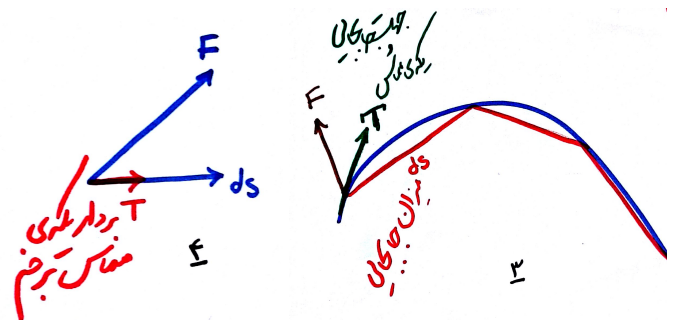 F
ds
T
بردار یکه‌ی
مماس بر خم
۴
جهت جابجایی
و
یکه‌ی مماس
F
T
ds
میزان جابجایی
۳